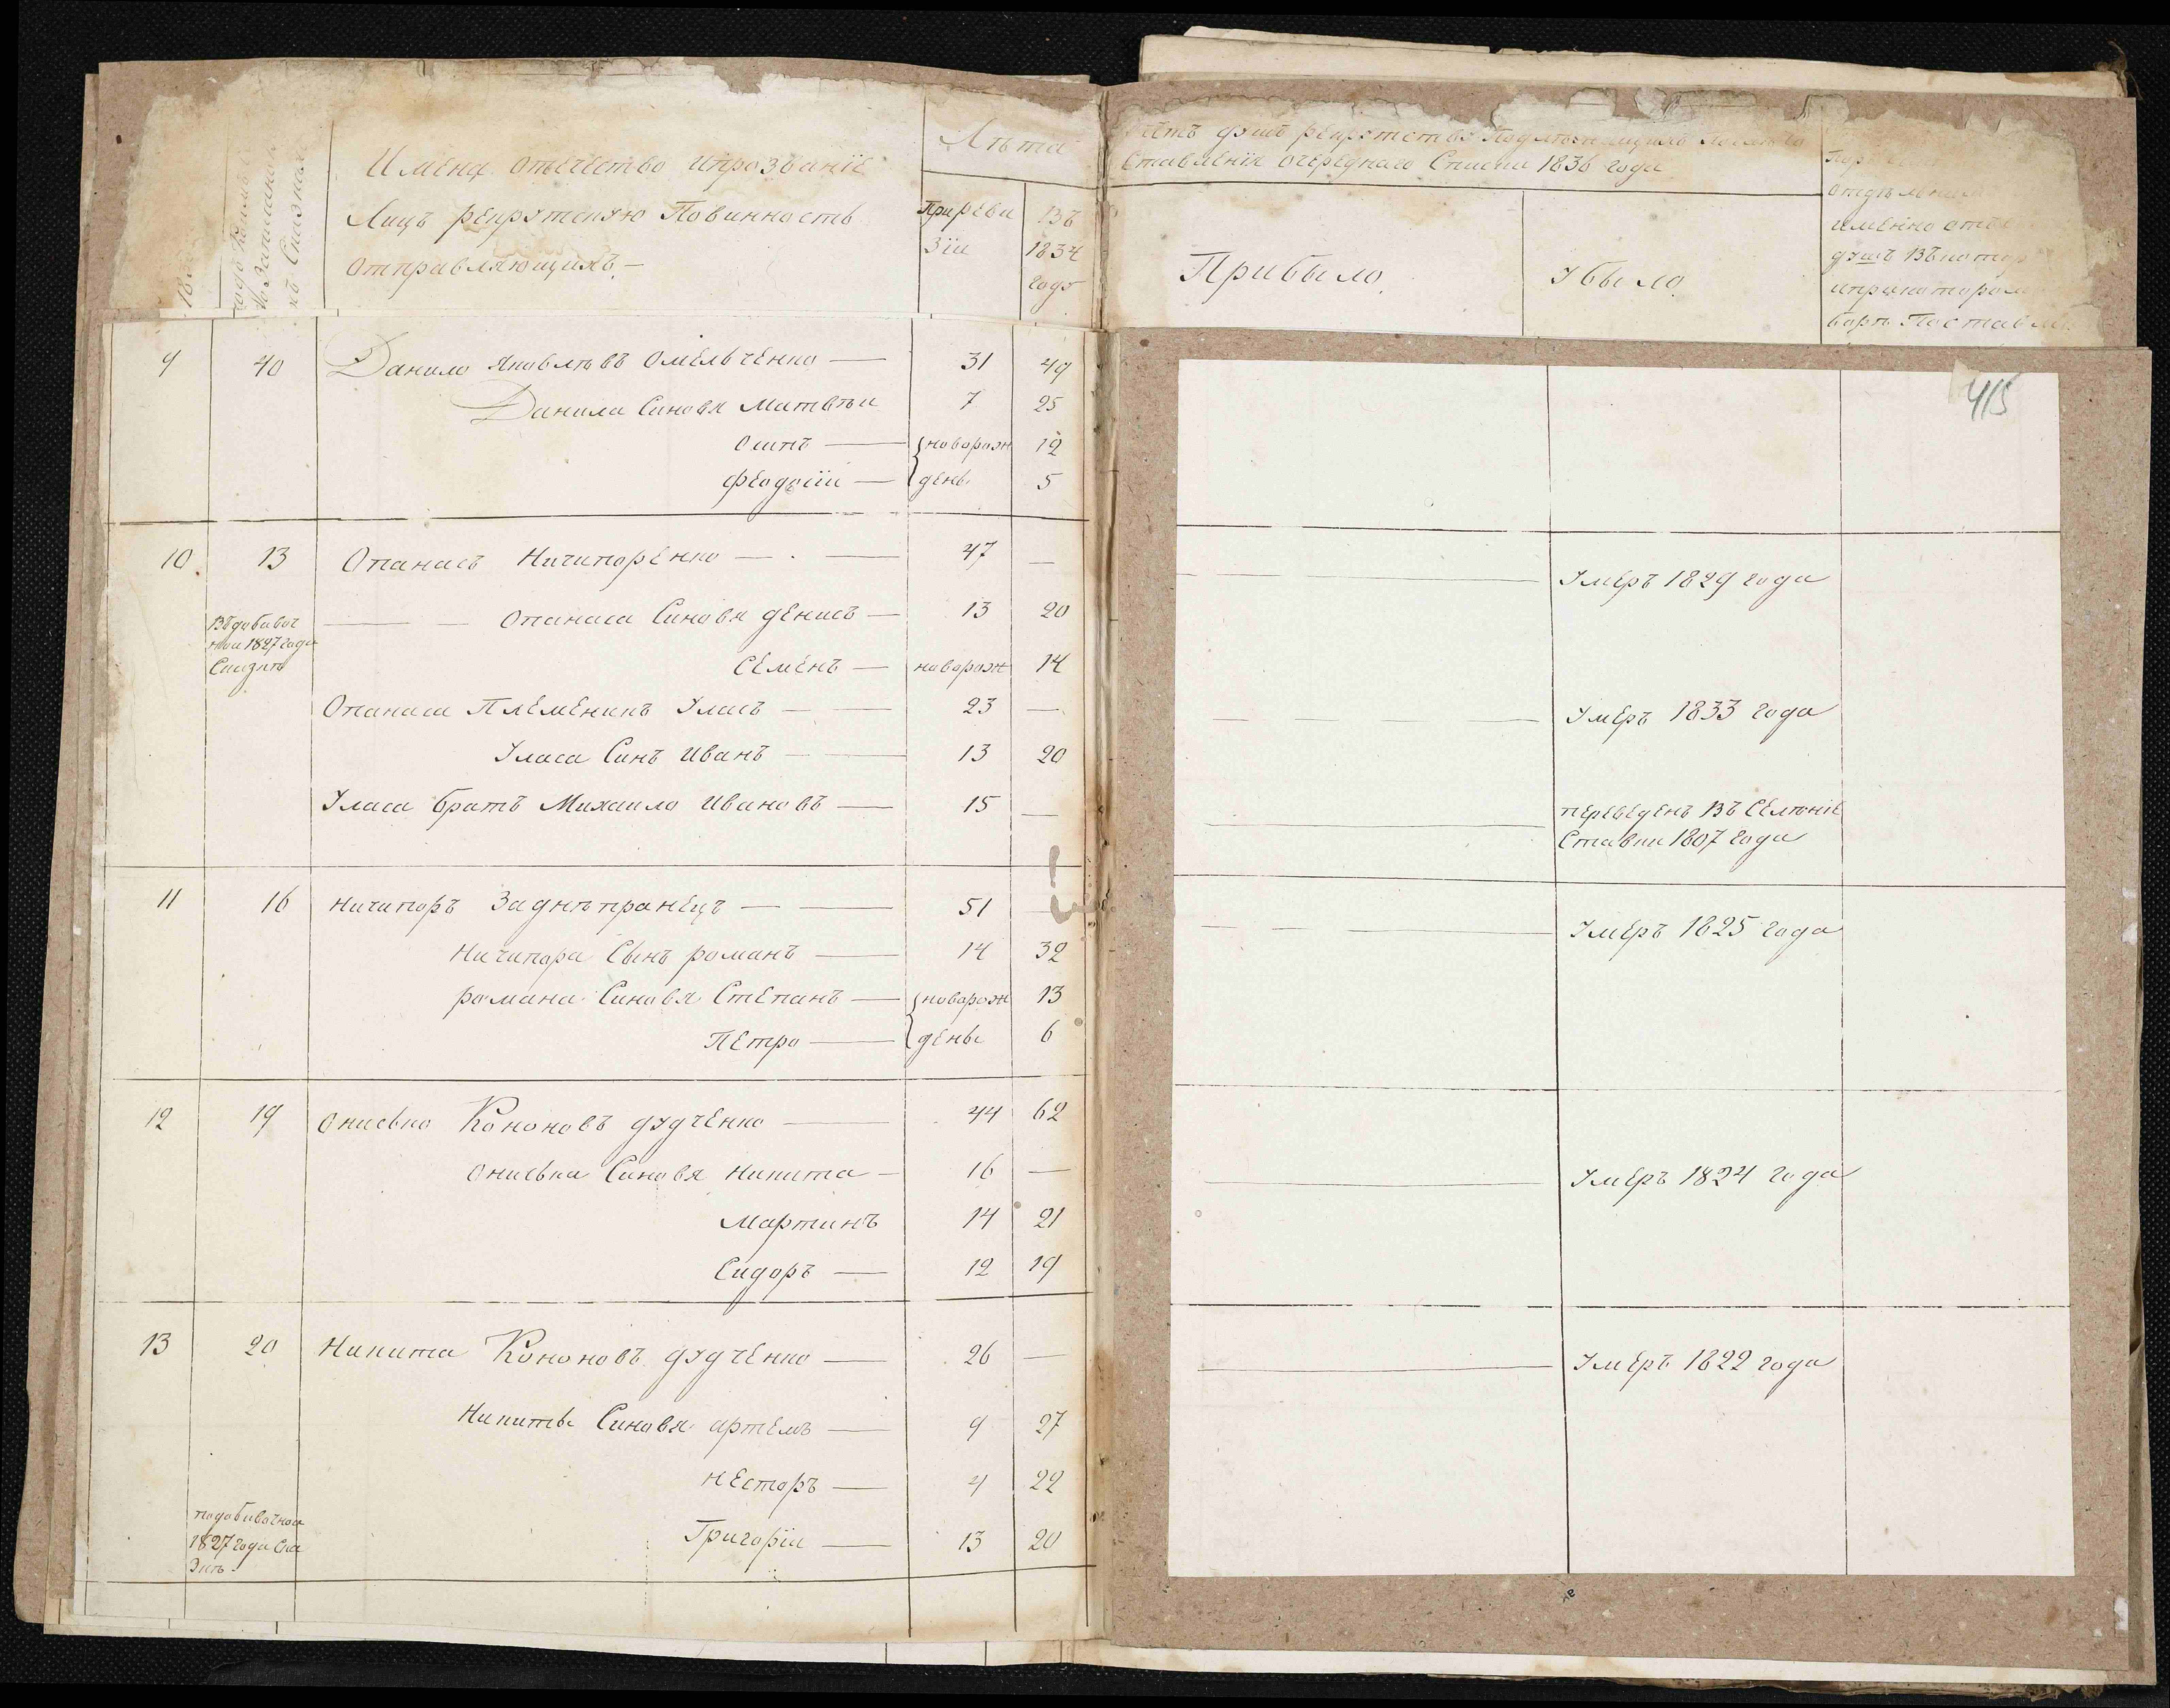 Имена отечество ипрозваніе
Лицъ рекрутскую Повинность
отправляющихъ.—
Лѣта
Приреви
зіи
Въ
1834
годѣ
душъ рекрутство
Ставленія очереднаго Списка 1836 года
Прибыло.
Убыло.
именно
душъ Въ
415
9 40 Данило Яковлѣвъ Омельченко — 31 49
Данила Синовя Матвѣи 7 25
Осипъ — новорож 12
Феодосіи — дены 5
10. 13 Опанасъ Ничипоренко — 47 — Умеръ 1829 года
Въ добавоч
нои 1827 года
Сказкѣ
Опанаса Синовя денисъ — 13 20
Семенъ — новорож 14
Опанаса Племеникъ Уласъ — 23 — Умеръ 1833 года
Уласа Синъ Иванъ — 13 20
Уласа братъ Михаило Ивановъ — 15 — переведенъ Въ Селѣніе
Ставки 1807 года
11 16 Ничипоръ Заднѣпранецъ — 51 — Умеръ 1825 года
Ничипора Сынъ романъ — 14 32
романа Синовя Степанъ — новорож 13
Петро — дены 6
12 19 Онисько Кононовъ дудченко — 44 62
Ониська Синовя Никита — 16 — Умеръ 1824 года
Мартинъ 14 21
Сидоръ — 12 19
13 20 Никита Кононовъ дудченко — 26 — Умеръ 1822 года
Никиты Синовя артемъ — 9 27
несторъ — 4 22
подобавочнои
1827 года Ска
зкѣ
Григоріи — 13 20